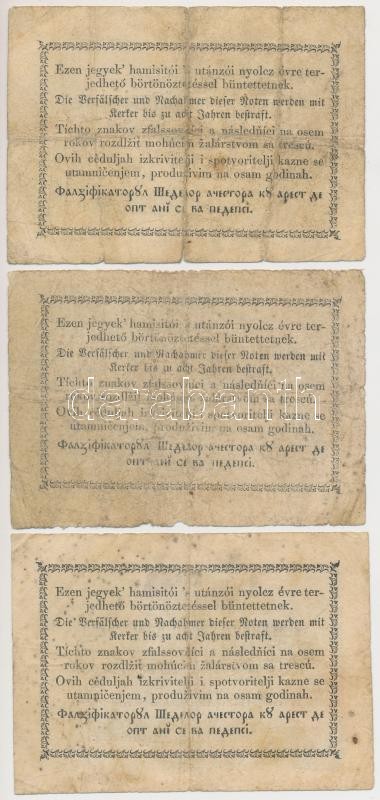 Ezen jegyek' hamisitói 's utánzói nyolcz évre ter-
jedhető börtönöztetéssel büntettetnek.
Die Verfälscher und Nachahmer dieser Noten werden mit
Kerker bis zu acht Jahren bestraft.
Tíchto znakov zfalssovňíci a následňíci na osem
rokov rozdlžit mohúcím žalárstvom sa trescú.
Ovih céduljah izkrivitelji i spotvoritelji kazne se
utamničenjem, produživim na osam godinah.
Фалзіфікаторꙋл Шеделор ачестора кꙋ арест де
опт анї се ва педепсі.
Ezen jegyek' hamisitói 's utánzói nyolcz évre ter-
jedhető börtönöztetéssel büntettetnek.
Die Verfälscher und Nachahmer dieser Noten werden mit
Kerker bis zu acht Jahren bestraft.
Tíchto znakov zfalssovňíci a následňíci na osem
rokov rozdlžit mohúcím žalárstvom sa trescú.
darabanth
Ovih céduljah izkrivitelji i spotvoritelji kazne se
utamničenjem, produživim na osam godinah.
Фалзіфікаторꙋл Шеделор ачестора кꙋ арест де
опт анї се ва педепсі.
Ezen jegyek' hamisitói 's utánzói nyolcz évre ter-
jedhető börtönöztetéssel büntettetnek.
Die Verfälscher und Nachahmer dieser Noten werden mit
Kerker bis zu acht Jahren bestraft.
Tíchto znakov zfalssovňíci a následňíci na osem
rokov rozdlžit mohúcím žalárstvom sa trescú.
Ovih céduljah izkrivitelji i spotvoritelji kazne se
utamničenjem, produživim na osam godinah.
Фалзіфікаторꙋл Шеделор ачестора кꙋ арест де
опт анї се ва педепсі.